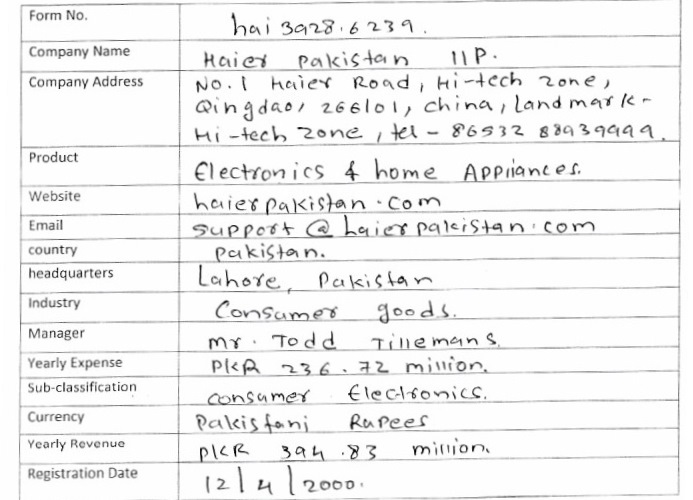 Form No. hai 3928.6239.
Company Name Haier Pakistan llP.
Company Address No.1 Haier Road, Hi-tech zone,
Qingdao, 266101, china, Landmark-
Hi-tech zone, tel - 86532 88939999.
Product Electronics & home Appliances.
Website haierpakistan.com
Email support@haierpakistan.com
country pakistan.
headquarters Lahore, Pakistan
Industry Consumer goods.
Manager Mr. Todd Tillemans.
Yearly Expense PKR 236.72 million.
Sub-classification consumer Electronics.
Currency Pakistani Rupees
Yearly Revenue PKR 394.83 million.
Registration Date 12/4/2000.